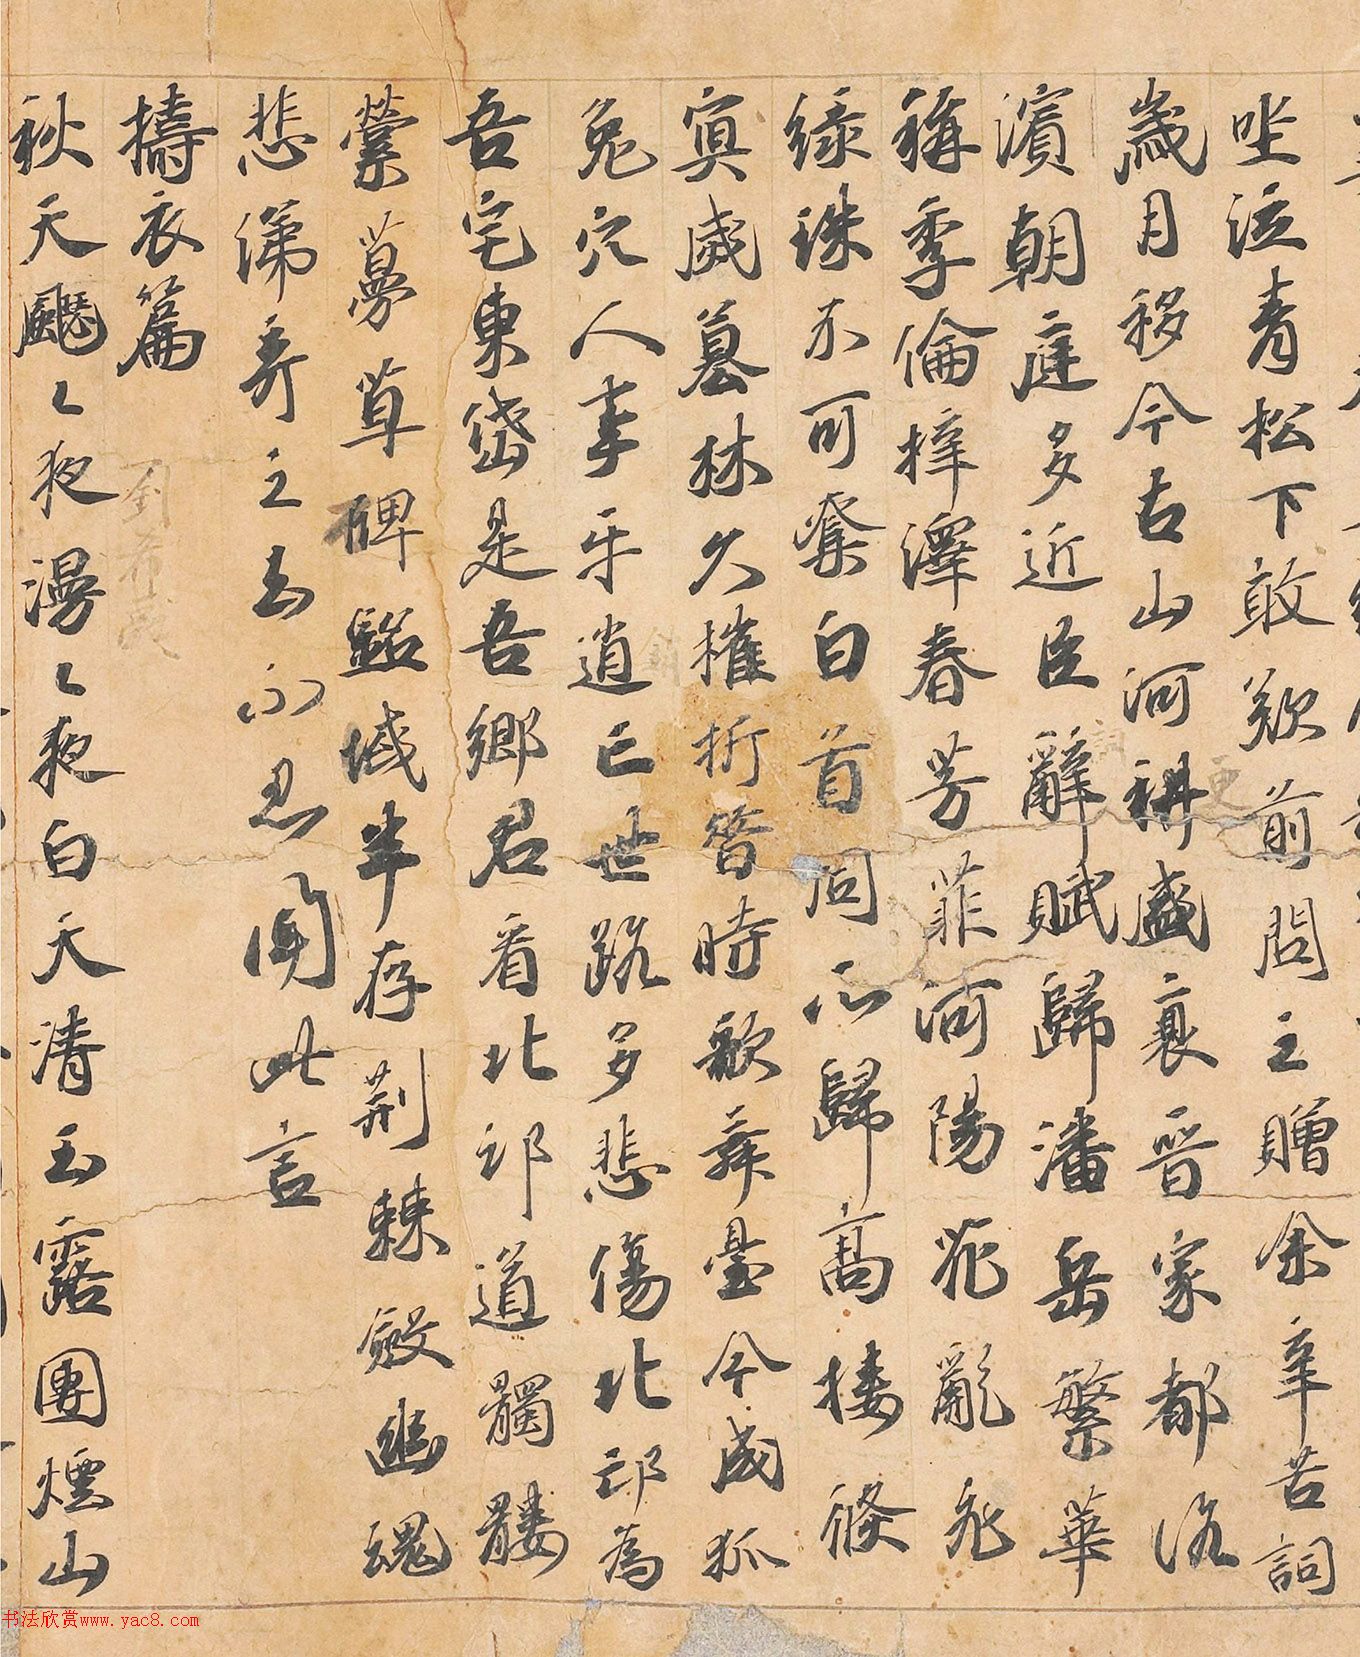 坐泣青松下敢欺前問之贈余辛苦詞
歲月移今古山河耕盛衰晉家都洛
濱朝庭多近臣辭賦歸潘岳繁華
稱季倫梓澤春芳菲河陽花亂飛
綠珠不可奪白首同所歸高樓倏
寘威墓林久摧折昔時歌舞臺今成狐
兔穴人事牙逍亡世路多悲傷北邙為
吾宅東岱是吾鄉君看北邙道髑髏
縈蔓草碑銘域半存荊棘斂幽魂
悲涕弃之去不忍聞此言
擣衣篇
劉希夷
秋天颷〻夜漫〻夜白天清玉露團煙山
書法欣赏www.yac8.com